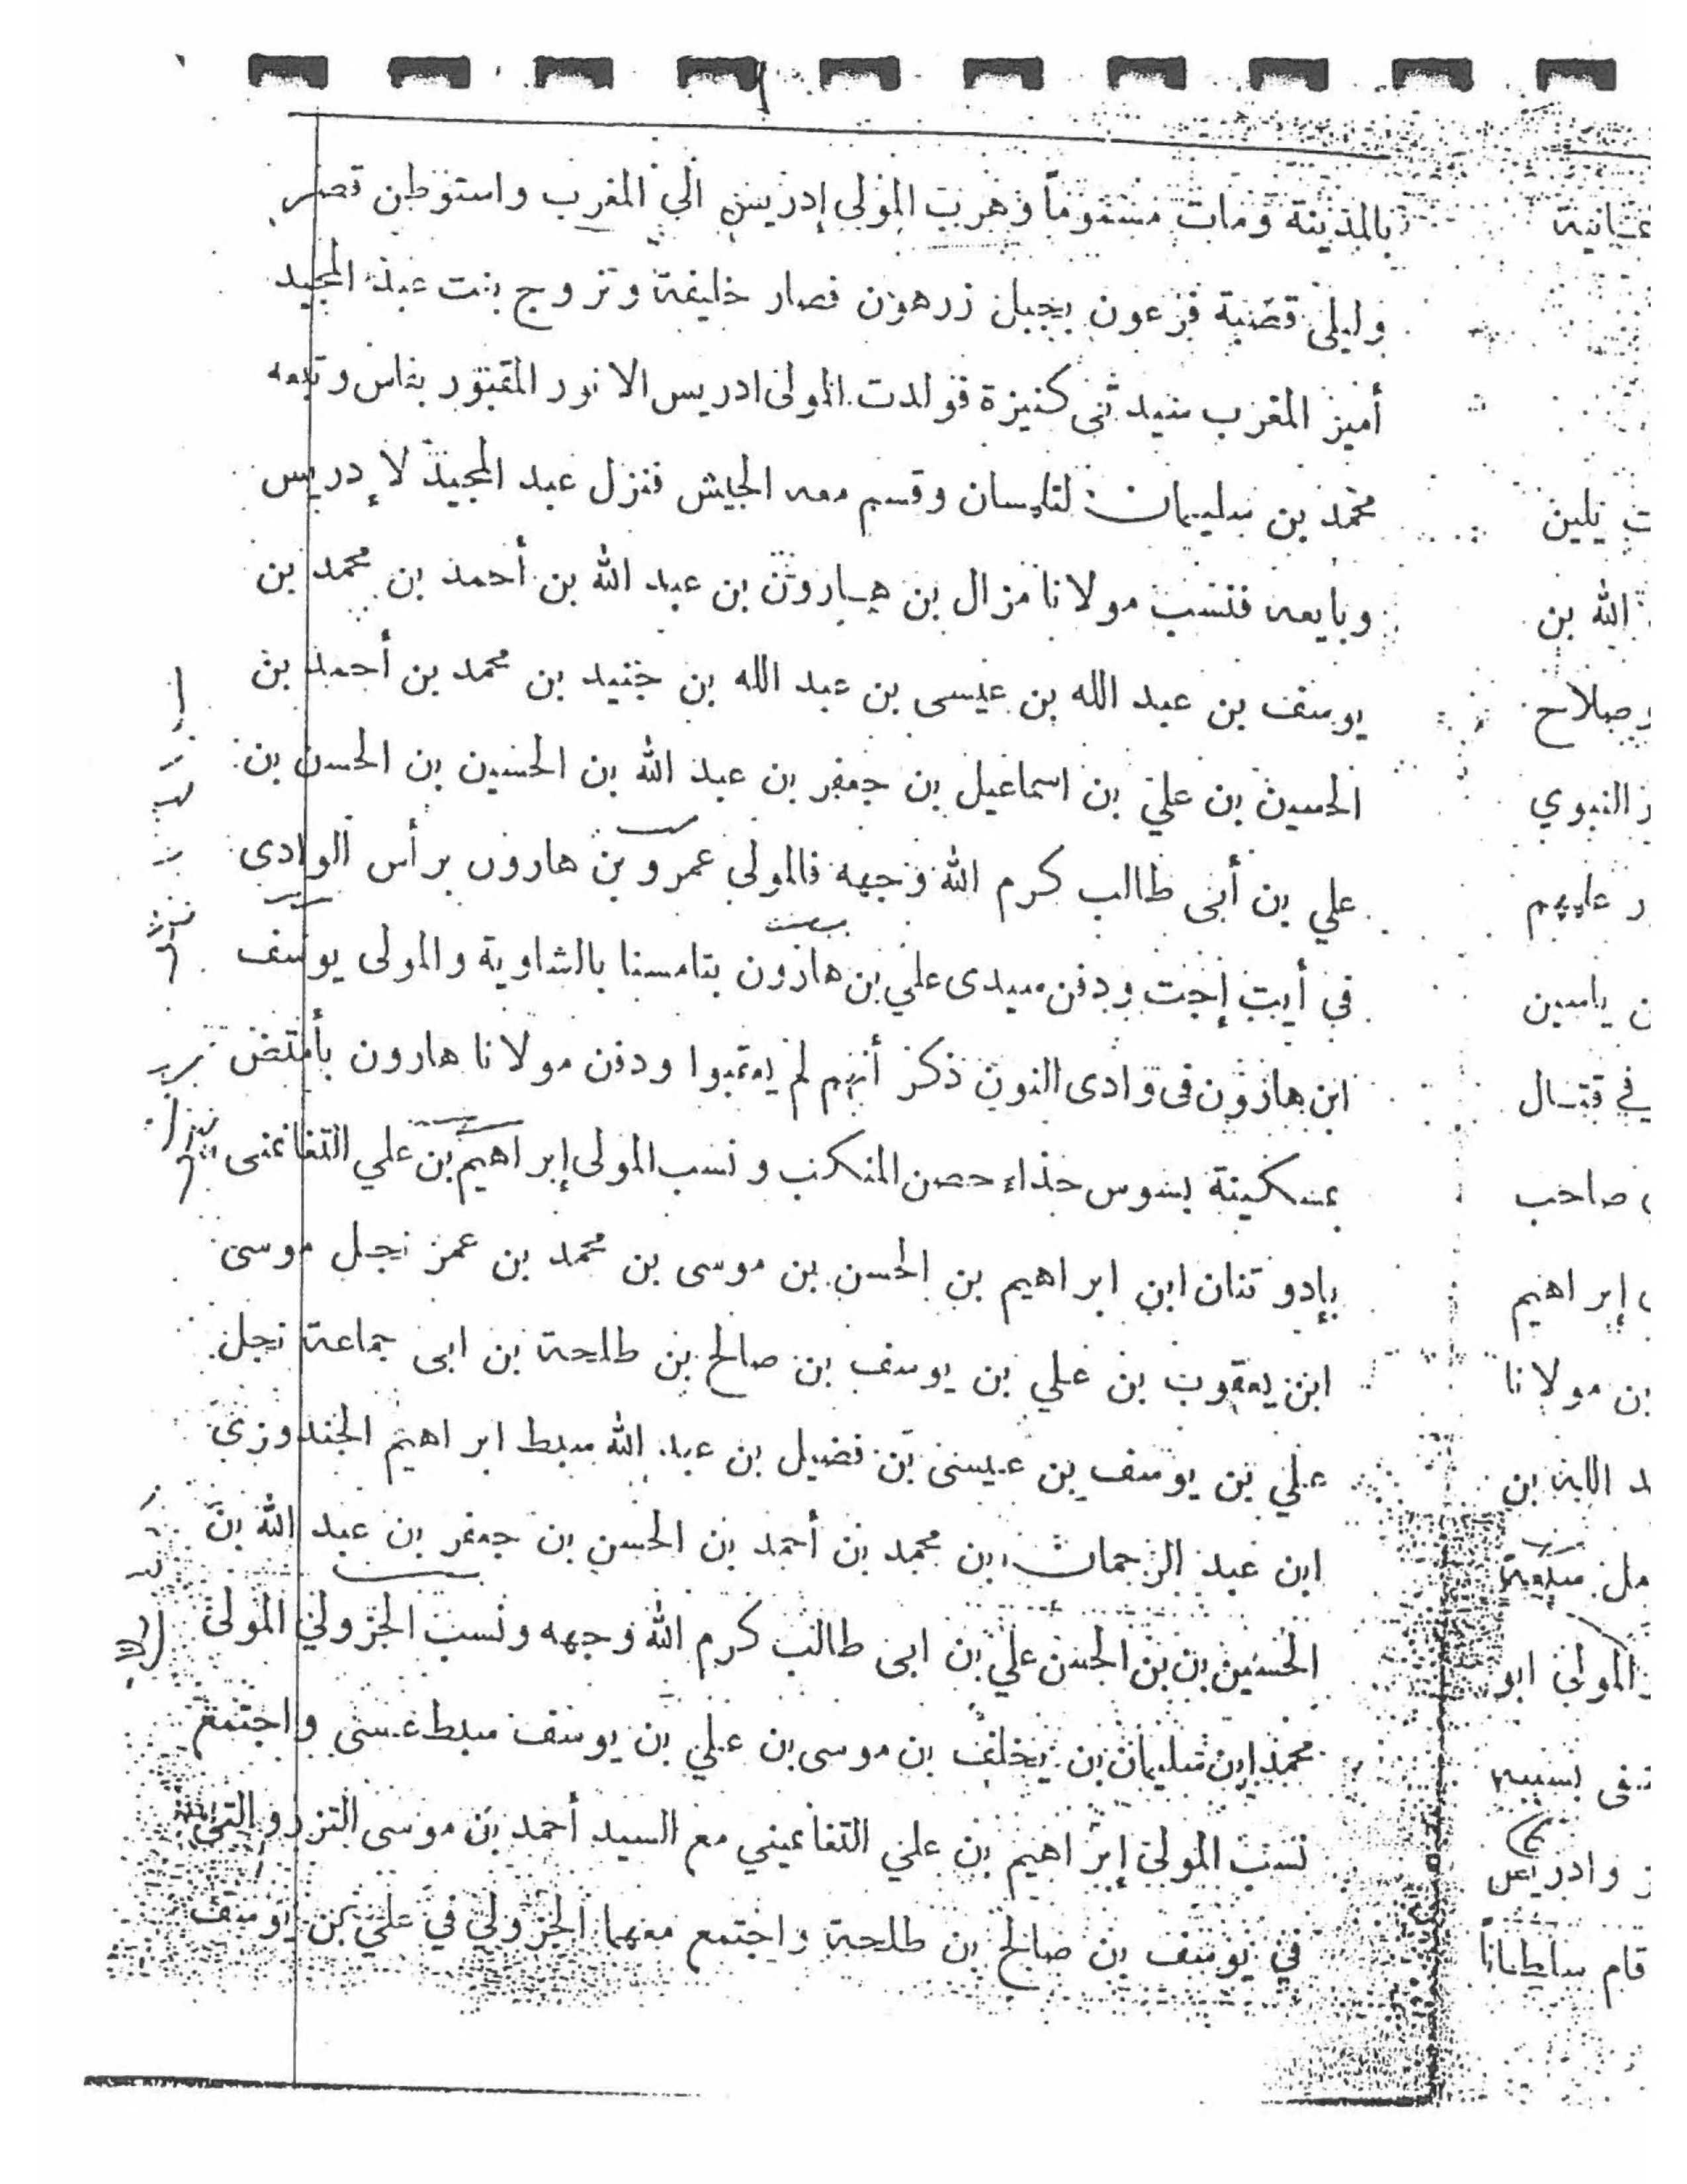 بالمدينة ومات مسموماً وهرب المولى إدريس الي المغرب واستوطن قصر
وليلى قصبة فرعون بجبل زرهون فصار خليفة وتزوج بنت عبد المجيد
أمير المغرب كنيزة فولدت المولى ادريس الانور المقبور بفاس وتبعه
محمد بن سليمان لتلمسان وقسم معه الجيش فنزل عبد المجيد لإدريس
وبايعه فنسب مولانا مزال بن هارون بن عبد الله بن أحمد بن محمد بن
يوسف بن عبد الله بن عيسى بن عبد الله بن جنيد بن محمد بن أحمد بن
الحسين بن علي بن اسماعيل بن جعفر بن عبد الله بن الحسين بن الحسن بن
علي بن أبى طالب كرم الله وجهه فالمولى عمرو بن هارون برأس الوادى
في أيت إجت ودفن سيدى علي بن هارون بتامسنا بالشاوية والمولى يوسف
ابن هارون فى وادى النون ذكر أنهم لم يعقبوا ودفن مولانا هارون بأمتضن
بمسكينة بسوس حذاء حصن المنكب ونسب المولى إبراهيم بن علي التغانمنى
بإدوتنان ابن ابراهيم بن الحسن بن موسى بن محمد بن عمر نجل موسى
ابن يعقوب بن علي بن يوسف بن صالح بن طلحة بن ابى جماعة نجل
علي بن يوسف بن عيسى بن فضيل بن عبد الله سبط ابراهيم الجندوزي
ابن عبد الرحمان بن محمد بن أحمد بن الحسن بن جعفر بن عبد الله بن
الحسين بن بن الحسن علي بن ابى طالب كرم الله وجهه ونسب الجزولي المولى
محمد ابن سليمان بن يخلف بن موسى بن علي بن يوسف سبط عسى واجتمع
نسب المولى إبراهيم بن علي التغانميني مع السيد أحمد بن موسى
في يوسف بن صالح بن طلحة واجتمع معهما الجزولي في علي بن يوسف
الله بن
وصلاح
النبوي
عليهم
ياسين
في قتال
صاحب
إبراهيم
بن مولانا
بن
المولى ابو
قام سلطاناً